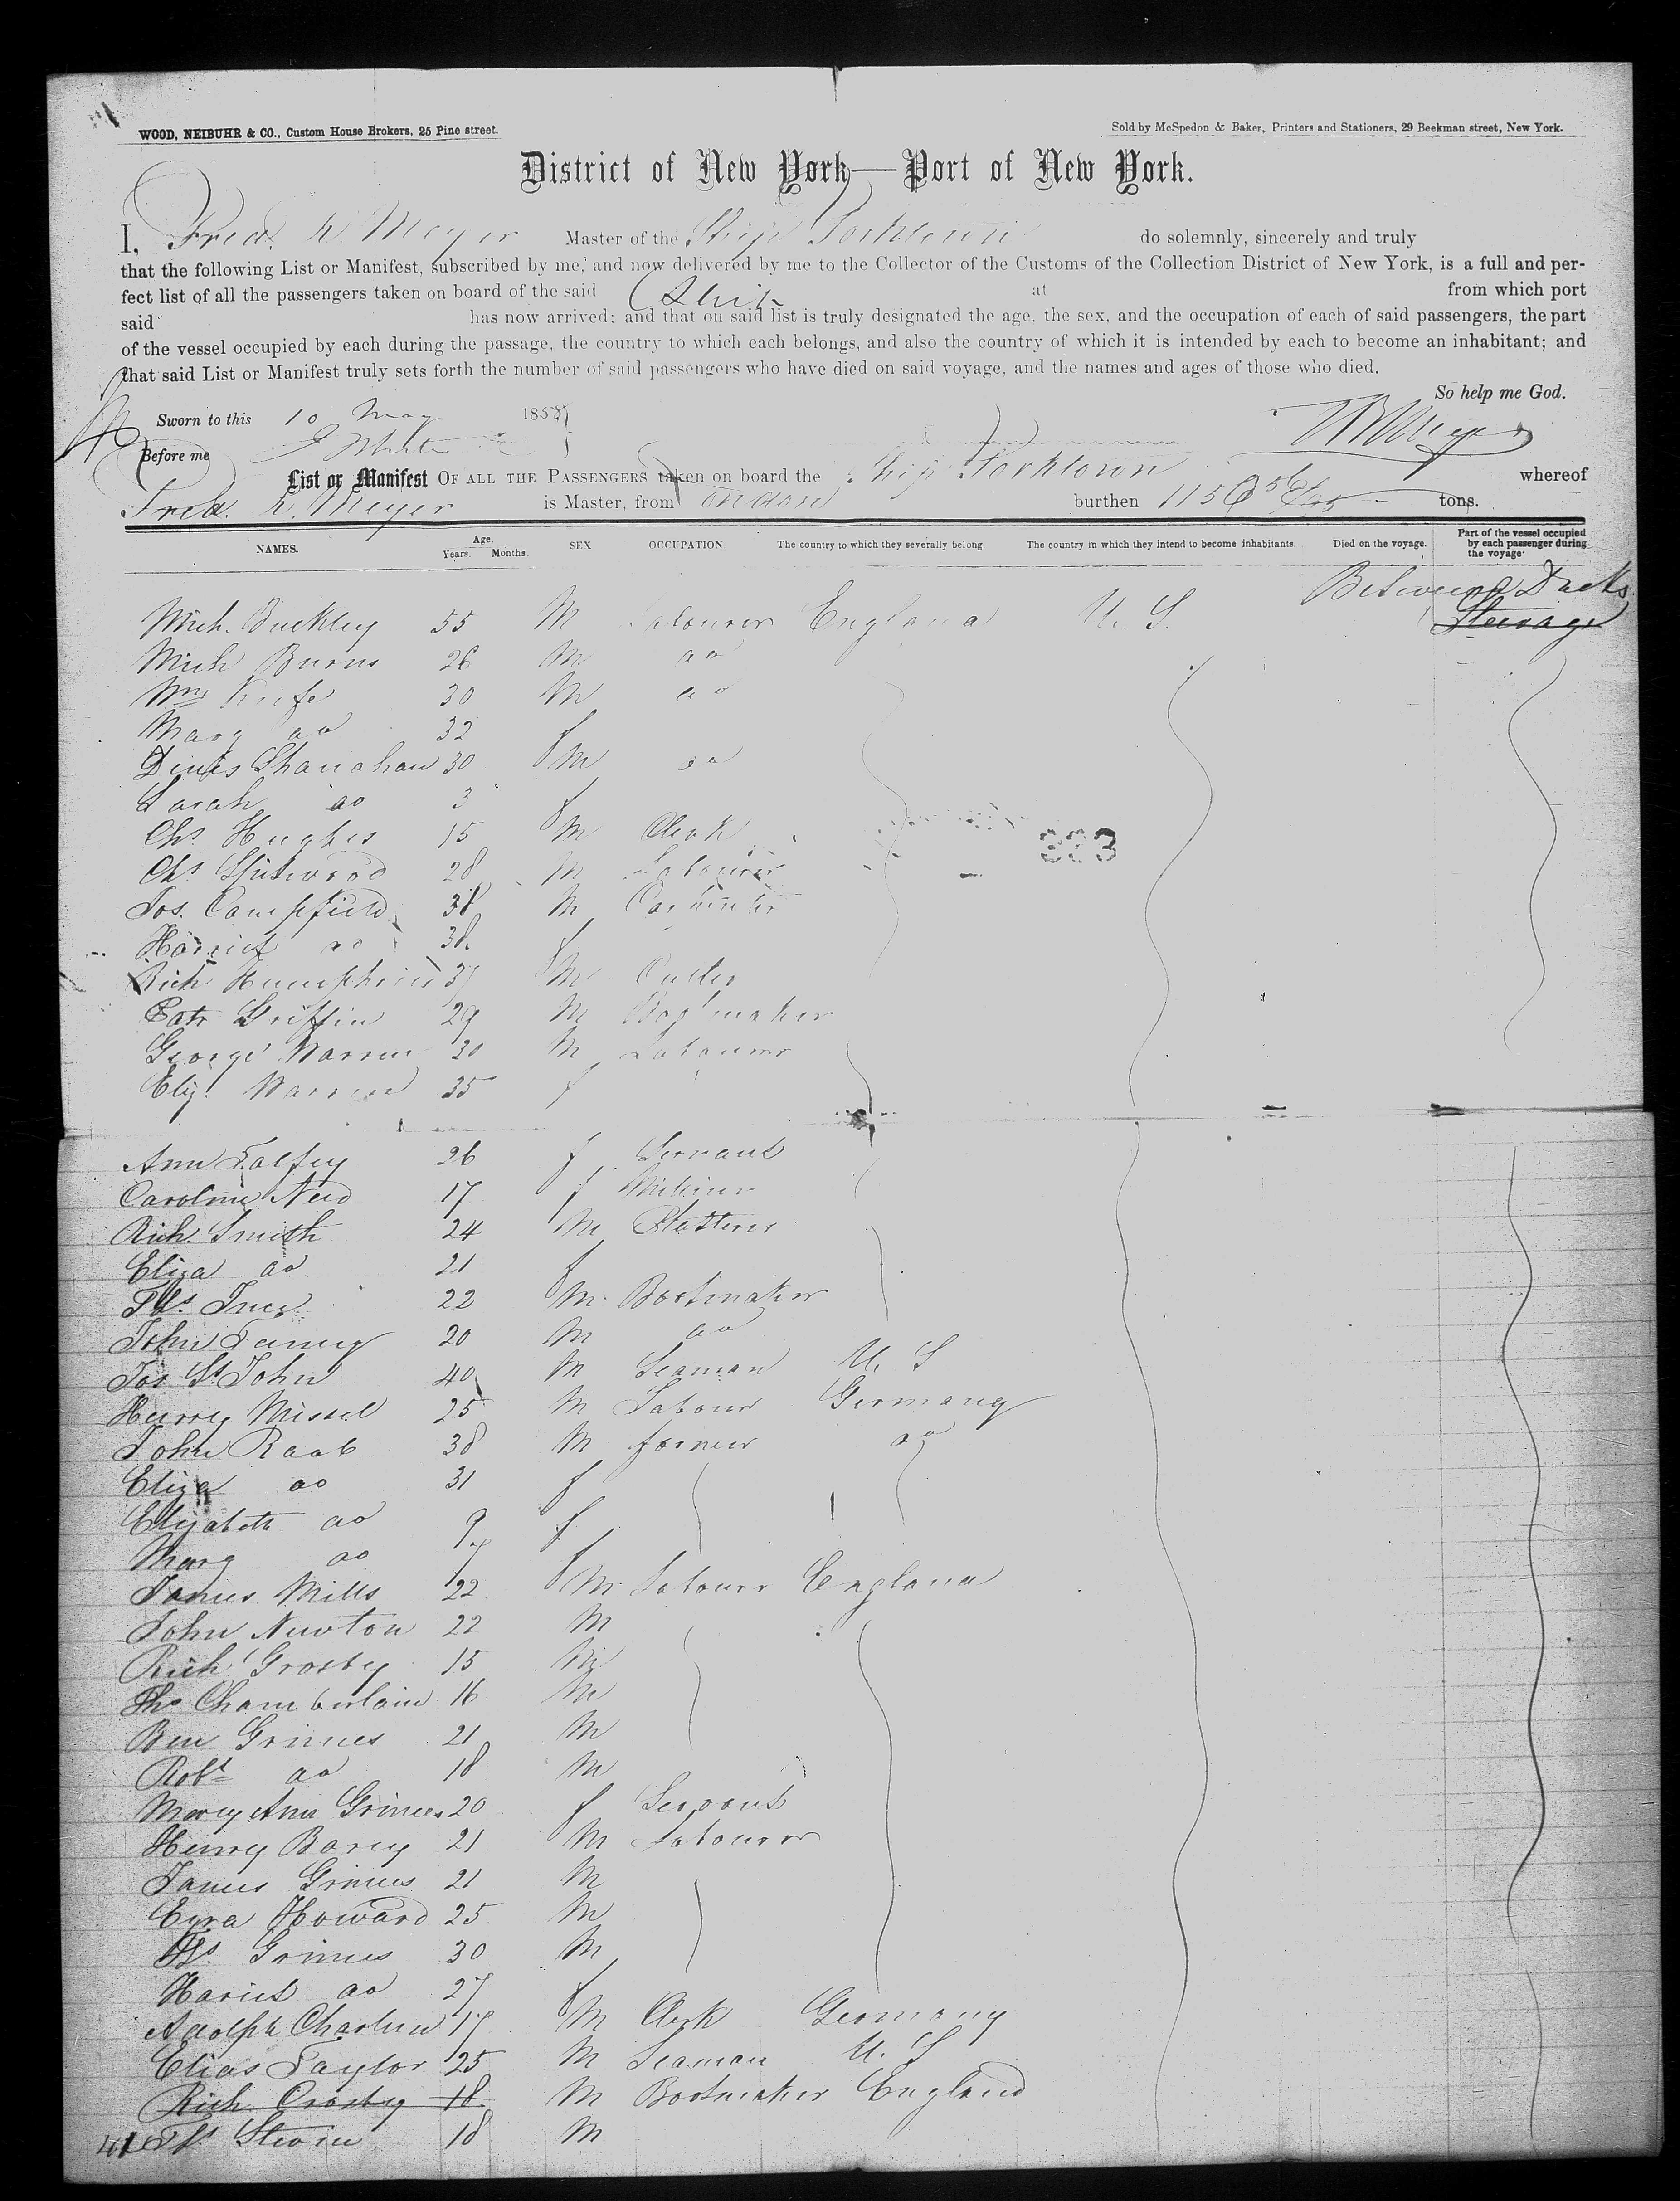 WOOD, NEIBUHR & CO., Custom House Brokers, 25 Pine street.
Sold by McSpedon & Baker, Printers and Stationers, 29 Beekman street, New York.
District of New York—Port of New York.
I, Fred. R. Meyer Master of the Ship Yorktown do solemnly, sincerely and truly
that the following List or Manifest, subscribed by me, and now delivered by me to the Collector of the Customs of the Collection District of New York, is a full and per-
fect list of all the passengers taken on board of the said Ship at from which port
said has now arrived; and that on said list is truly designated the age, the sex, and the occupation of each of said passengers, the part
of the vessel occupied by each during the passage, the country to which each belongs, and also the country of which it is intended by each to become an inhabitant; and
that said List or Manifest truly sets forth the number of said passengers who have died on said voyage, and the names and ages of those who died.
So help me God.
Sworn to this 10 May 185
Before me
List or Manifest OF ALL THE PASSENGERS taken on board the Ship Yorktown whereof
Fred. R. Meyer is Master, from London burthen 1150 tons.
NAMES. Age. Years. Months. SEX OCCUPATION. The country to which they severally belong. The country in which they intend to become inhabitants. Died on the voyage. Part of the vessel occupied by each passenger during the voyage
Between Decks
Mich. Buckley 55 M Labourer England U. S. Steerage
Mich Burns 26 M do
Wm Keefe 30 M do
Mary do 32 f
Denis Shanahan 30 M do
Sarah do 3 f
Chs Hughes 15 M Clerk
Chs Spitwood 28 M Labourer
333
Jos. Campfield 38 M Carpenter
Harriet do 38 f
Rich Humphries 37 M Cutler
Patr Griffin 29 M Bag maker
George Warren 30 M Labourer
Eliz. Warren 35 f
Ann Falfey 26 f Servant
Caroline Need 17 f Milliner
Rich. Smith 24 M Platterer
Eliza do 21 f
Ths. 22 M Bootmaker
John 20 M do
Jos St. John 40 M Seaman U. S
Henry Missel 25 M Labour Germany
John Raab 38 M farmer do
Eliza do 31 f
Elizabeth do 9 f
Marg do 7 f
James Mills 22 M Labourer England
John Newton 22 M
Rich Grosby 15 M
Ths Chamberlain 16 M
Ben Grimes 21 M
Robt do 18 M
Mary Ann Grimes 20 f Servant
Henry Barey 21 M Labourer
James Grimes 21 M
Ezra Howard 25 M
Ths. Grimes 30 M
Hariet do 27 f
Adolph Charlun 17 M Clerk Germany
Elias Taylor 25 M Seaman U. S
Rich. Crosby 18 M Bootmaker England
41 Ths. 18 M